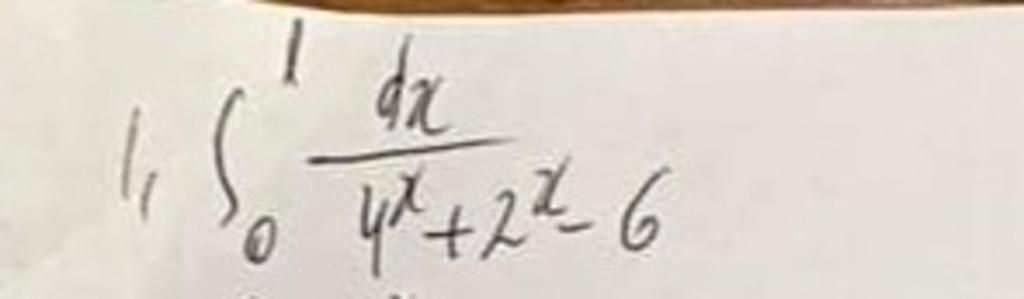 1, ∫₀¹ dx / (4ˣ + 2ˣ - 6)